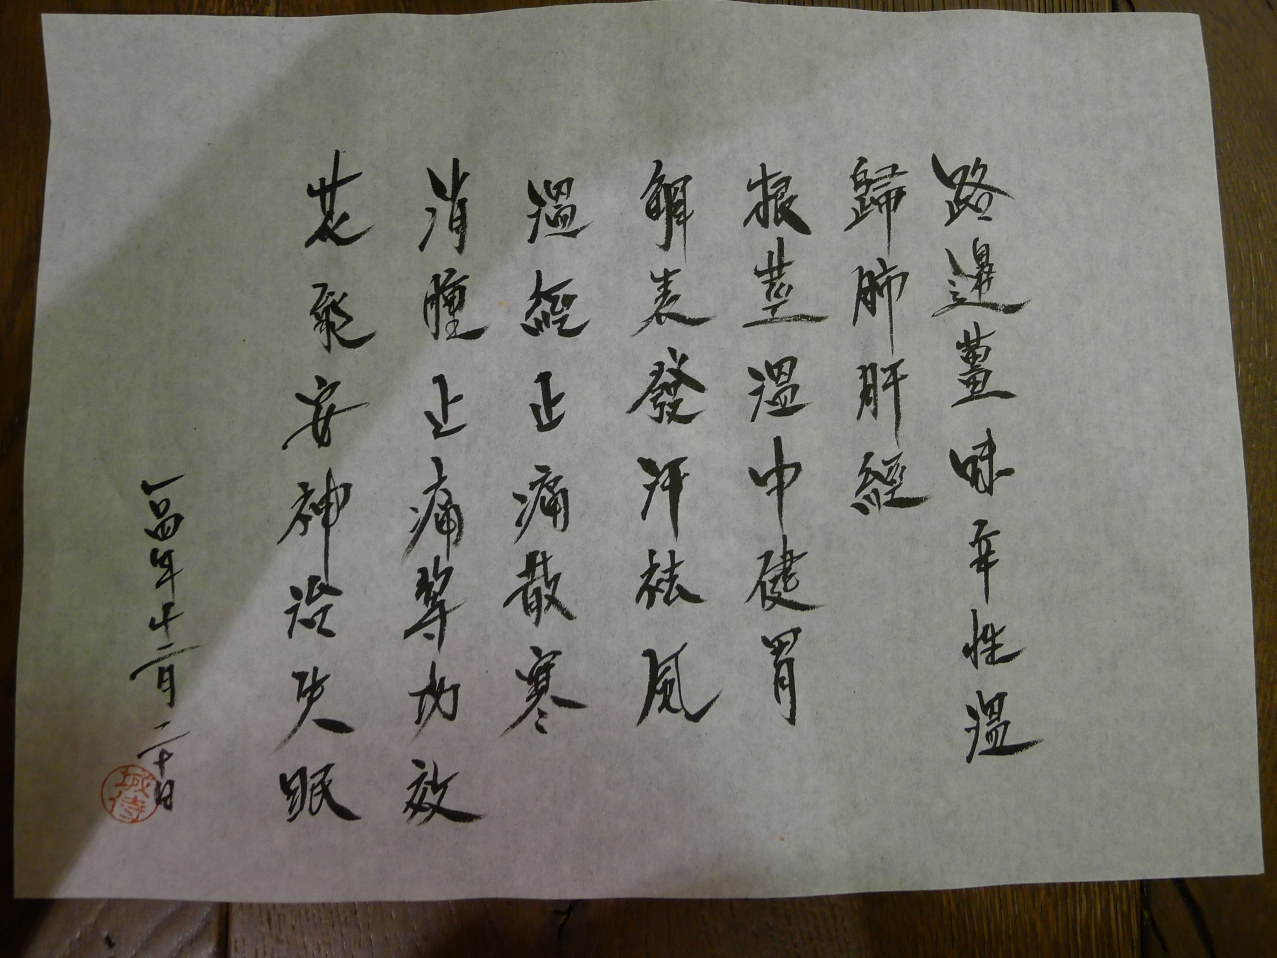 路邊薑味辛性溫
歸肺肝經
根莖溫中健胃
解表發汗祛風
溫經止痛散寒
消腫止痛等功效
花聚安神治失眠
一百四年十二月二十日